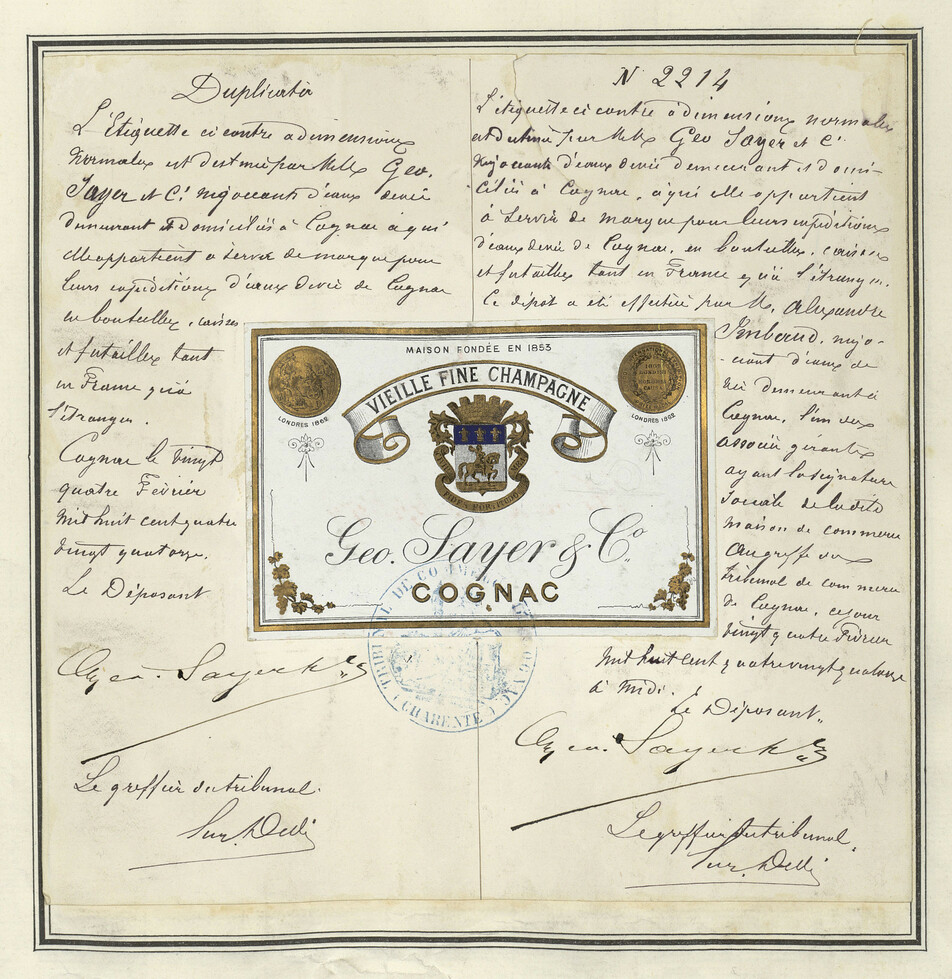 Duplicata
L'Etiquette ci contre a dimensions
normales est destinée par MM Geo.
Sayer et Cie négociants d'eaux de vie
demeurant et domiciliés à Cognac à qui
elle appartient à servir de marque pour
leurs expéditions d'eaux de vie de Cognac
en bouteilles, caisses
et futailles tant
en France qu'à
l'étranger.
Cognac le vingt
quatre Février
mil huit cent quatre
vingt quatorze.
Le Déposant
Geo. Sayer & Co
Le greffier du tribunal.
N 2214
L'étiquette ci contre à dimensions normales
est destinée par MM Geo Sayer et Cie
négociants d'eaux de vie demeurant et domi-
ciliés à Cognac, à qui elle appartient
à servir de marque pour leurs expéditions
d'eaux de vie de Cognac, en bouteilles, caisses
et futailles tant en France qu'à l'étranger.
Ce dépôt a été effectué par M. Alexandre
Imbaud, négo-
-ciant d'eaux de
vie demeurant à
Cognac, l'un des
associés gérants
ayant la signature
sociale de la dite
maison de commerce
au greffe du
tribunal de commerce
de Cognac, ce jour
vingt quatre Février
mil huit cent quatre vingt quatorze
à midi.
Le Déposant
Geo. Sayer & Co
Le greffier du tribunal.
MAISON FONDÉE EN 1853
VIEILLE FINE CHAMPAGNE
LONDRES 1862
LONDRES 1862
Geo. Sayer & Co.
COGNAC
TRIBUNAL DE COMMERCE COGNAC
(CHARENTE)